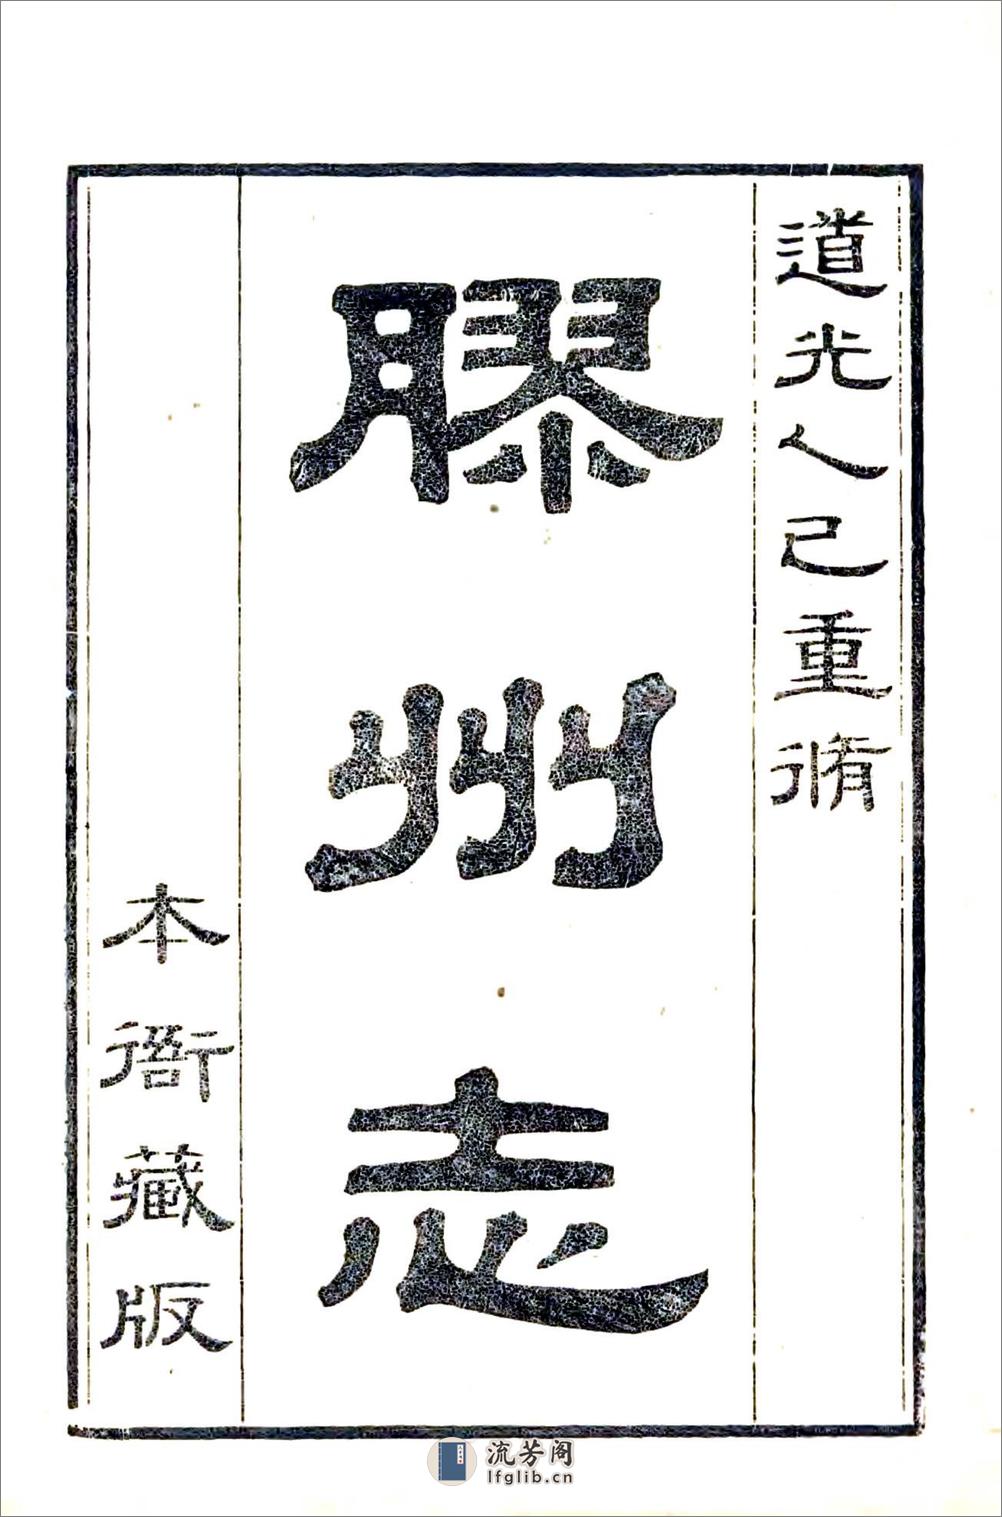 道光乙巳重脩
膠州志
本衙藏版
流芳阁
lfglib.cn